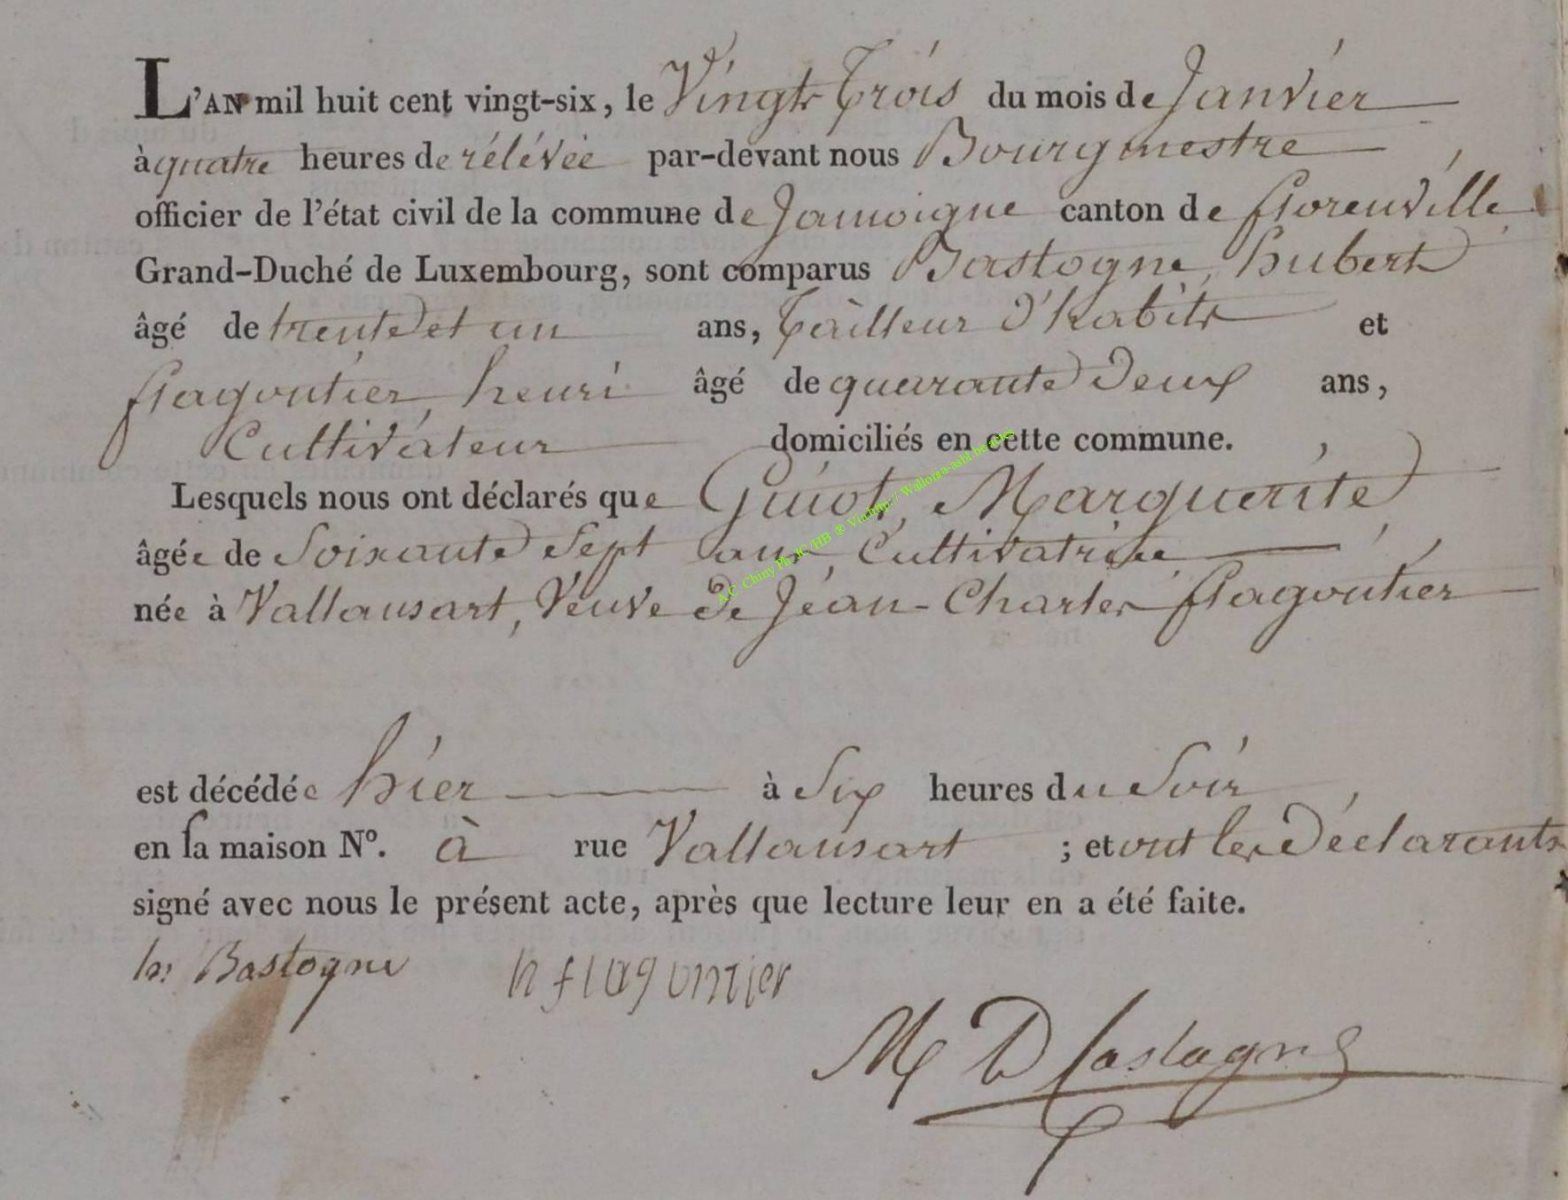 L'AN mil huit cent vingt-six, le Vingt Trois du mois de Janvier
à quatre heures de rélévée par-devant nous Bourgmestre
officier de l'état civil de la commune de Jamoigne canton de florenville
Grand-Duché de Luxembourg, sont comparus Bastogne, hubert
âgé de trente et un ans, Tailleur d'habits et
flagoutier, henri âgé de quarante deux ans,
Cultivateur domiciliés en cette commune.
Lesquels nous ont déclarés que Guiot, Marguerite
âgée de Soixante Sept ans, Cultivatrice
née à Vallansart, Veuve de Jean-Charles flagoutier
est décédée hier à Six heures du Soir
en sa maison N°. à rue Vallansart ; et ont les déclarants
signé avec nous le présent acte, après que lecture leur en a été faite.
h. Bastogne h flagoutier